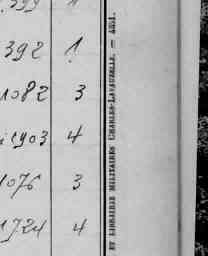 392 1
1082 3
1903 4
1076 3
1724 4
ET LIBRAIRIE MILITAIRES CHARLES-LAVAUZELLE. —